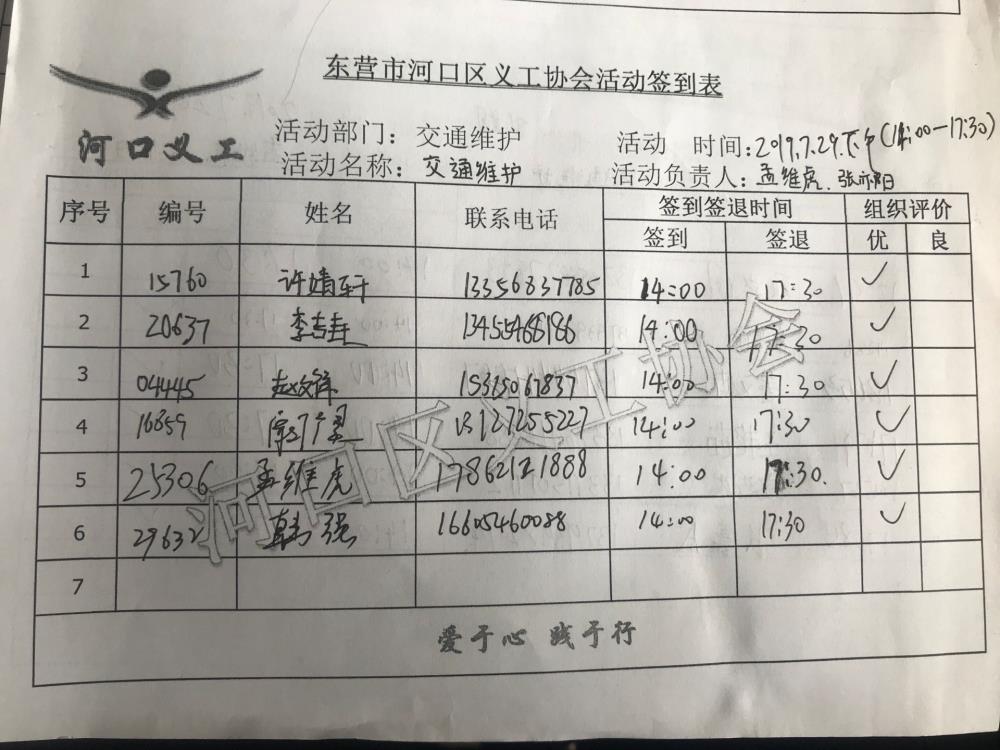 东营市河口区义工协会活动签到表
河口义工
活动部门：交通维护 活动 时间：2019.7.29.下午(14:00-17:30)
活动名称：交通维护 活动负责人：孟维虎、张
序号 编号 姓名 联系电话 签到签退时间 组织评价
签到 签退 优 良
1 15760 许靖轩 13356837785 14:00 17:30 ✓
2 20637 李吉 13455468186 14:00 17:30 ✓
3 04445 赵 15325067837 14:00 17:30 ✓
4 16859 13127255227 14:00 17:30 ✓
5 25306 孟维虎 17862121888 14:00 17:30. ✓
6 29632 韩强 16605460088 14:00 17:30 ✓
7
爱于心 践于行
河口区义工协会